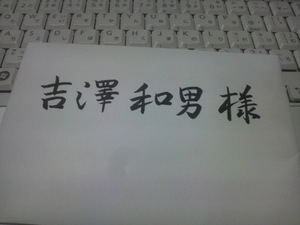 吉澤和男様